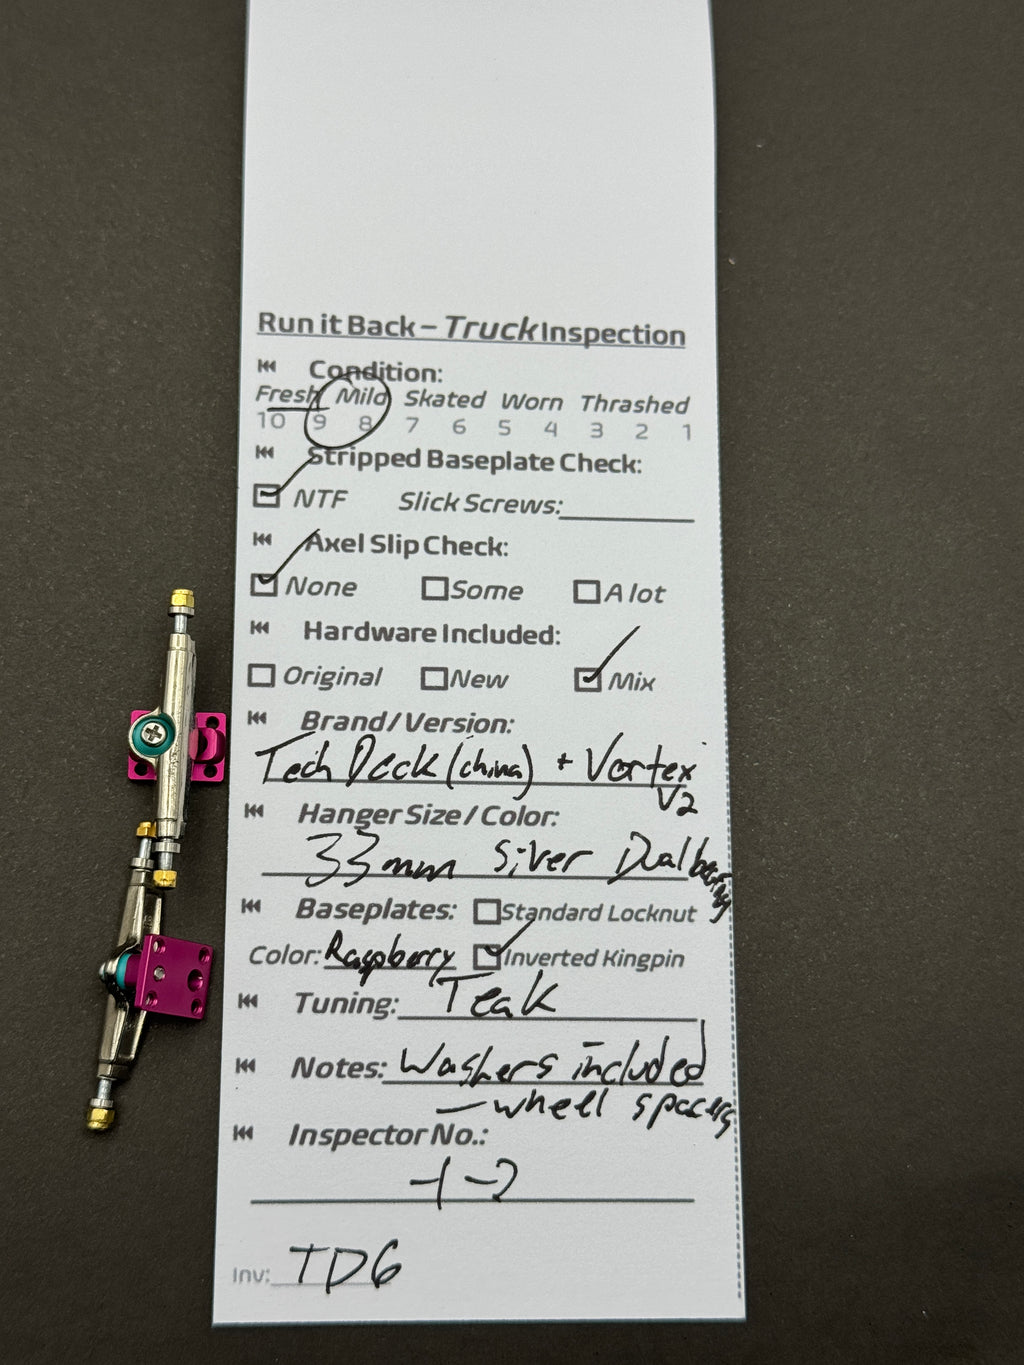 Run it Back – Truck Inspection
Condition:
Fresh Mild Skated Worn Thrashed
10 9 8 7 6 5 4 3 2 1
Stripped Baseplate Check:
NTF Slick Screws:
Axel Slip Check:
None Some A lot
Hardware Included:
Original New Mix
Brand/Version:
Tech Deck (china) + Vortex
V2
Hanger Size/Color:
33mm Silver Dual bearing
Baseplates: Standard Locknut
Color: Raspberry Inverted Kingpin
Tuning: Teak
Notes: Washers included
– wheel spacers
Inspector No.:
Inv: TD6